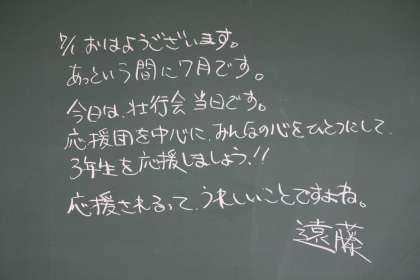 7/1 おはようございます。
あっという間に7月です。
今日は、壮行会当日です。
応援団を中心に、みんなの心をひとつにして、
3年生を応援しましょう!!
応援されるって、うれしいことですよね。
遠藤